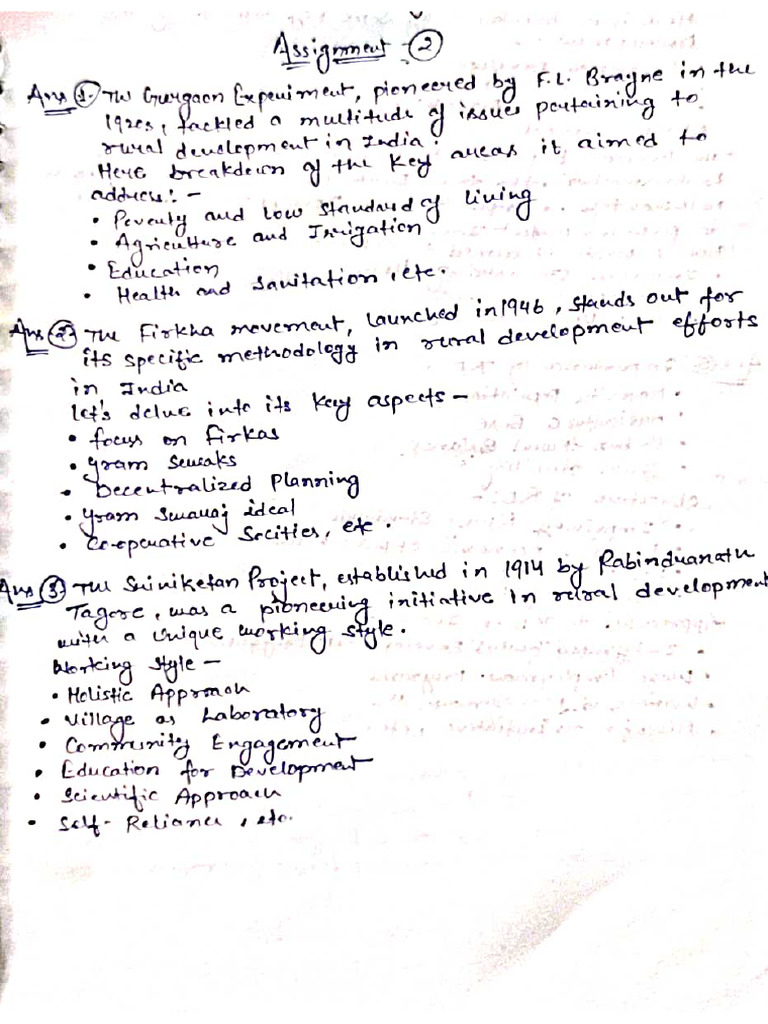 Assignment - 2
Ans 1. The Gurgaon Experiment, pioneered by F.L. Brayne in the
1920s, tackled a multitude of issues pertaining to
rural development in India.
Here breakdown of the key areas it aimed to
address: -
• Poverty and low standard of living
• Agriculture and Irrigation
• Education
• Health and Sanitation, etc.
Ans 2. The Firkha movement, launched in 1946, stands out for
its specific methodology in rural development efforts
in India
let's delve into its key aspects -
• focus on firkas
• gram sewaks
• Decentralized Planning
• gram swaraj ideal
• Co-operative Socities, etc.
Ans 3. The Sriniketan Project, established in 1914 by Rabindranath
Tagore, was a pioneering initiative in rural development
with a unique working style.
Working style -
• Holistic Approach
• Village as Laboratory
• Community Engagement
• Education for Development
• Scientific Approach
• Self-Reliance, etc.